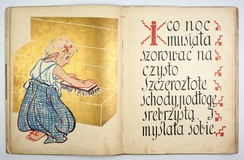 I co noc
musiała
szorować na
czysto
szczerozłote
schody, podłogę
srebrzystą. I
myślała sobie